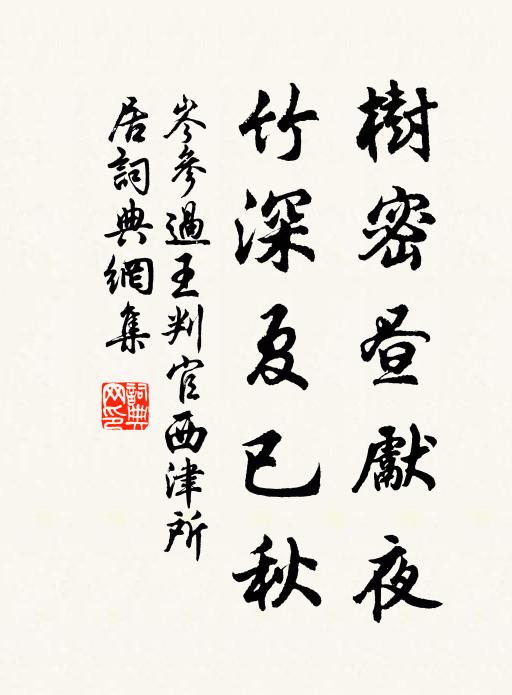 樹密昼獻夜
竹深夏已秋
岑參過王判官西津所
居詞典網集
詞典
网印